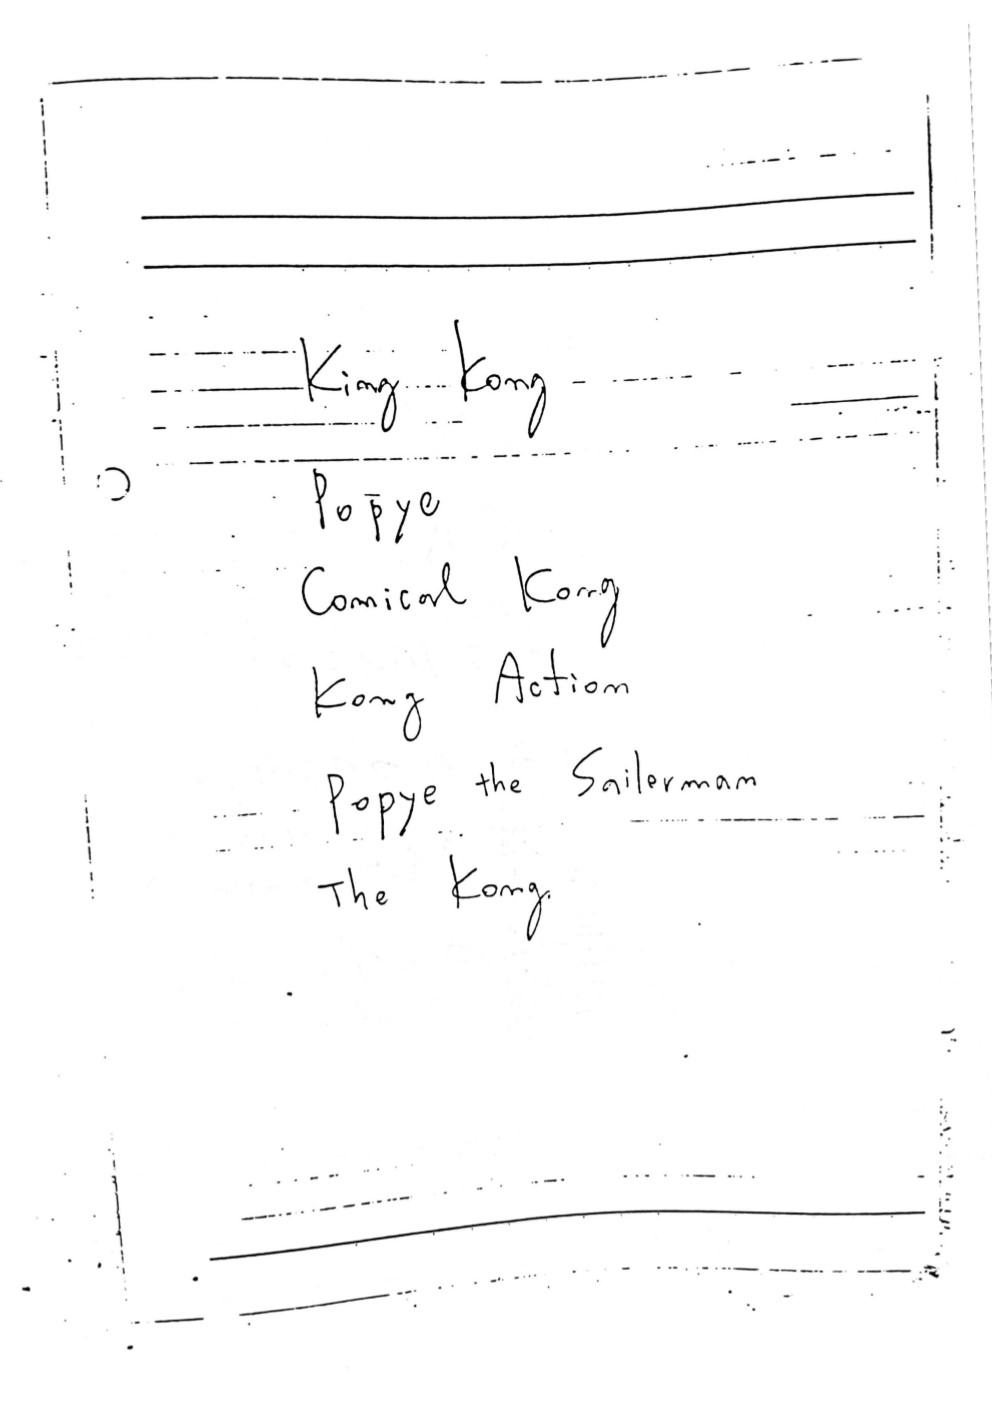 King Kong
Popye
Comical Kong
Kong Action
Popye the Sailerman
The Kong.